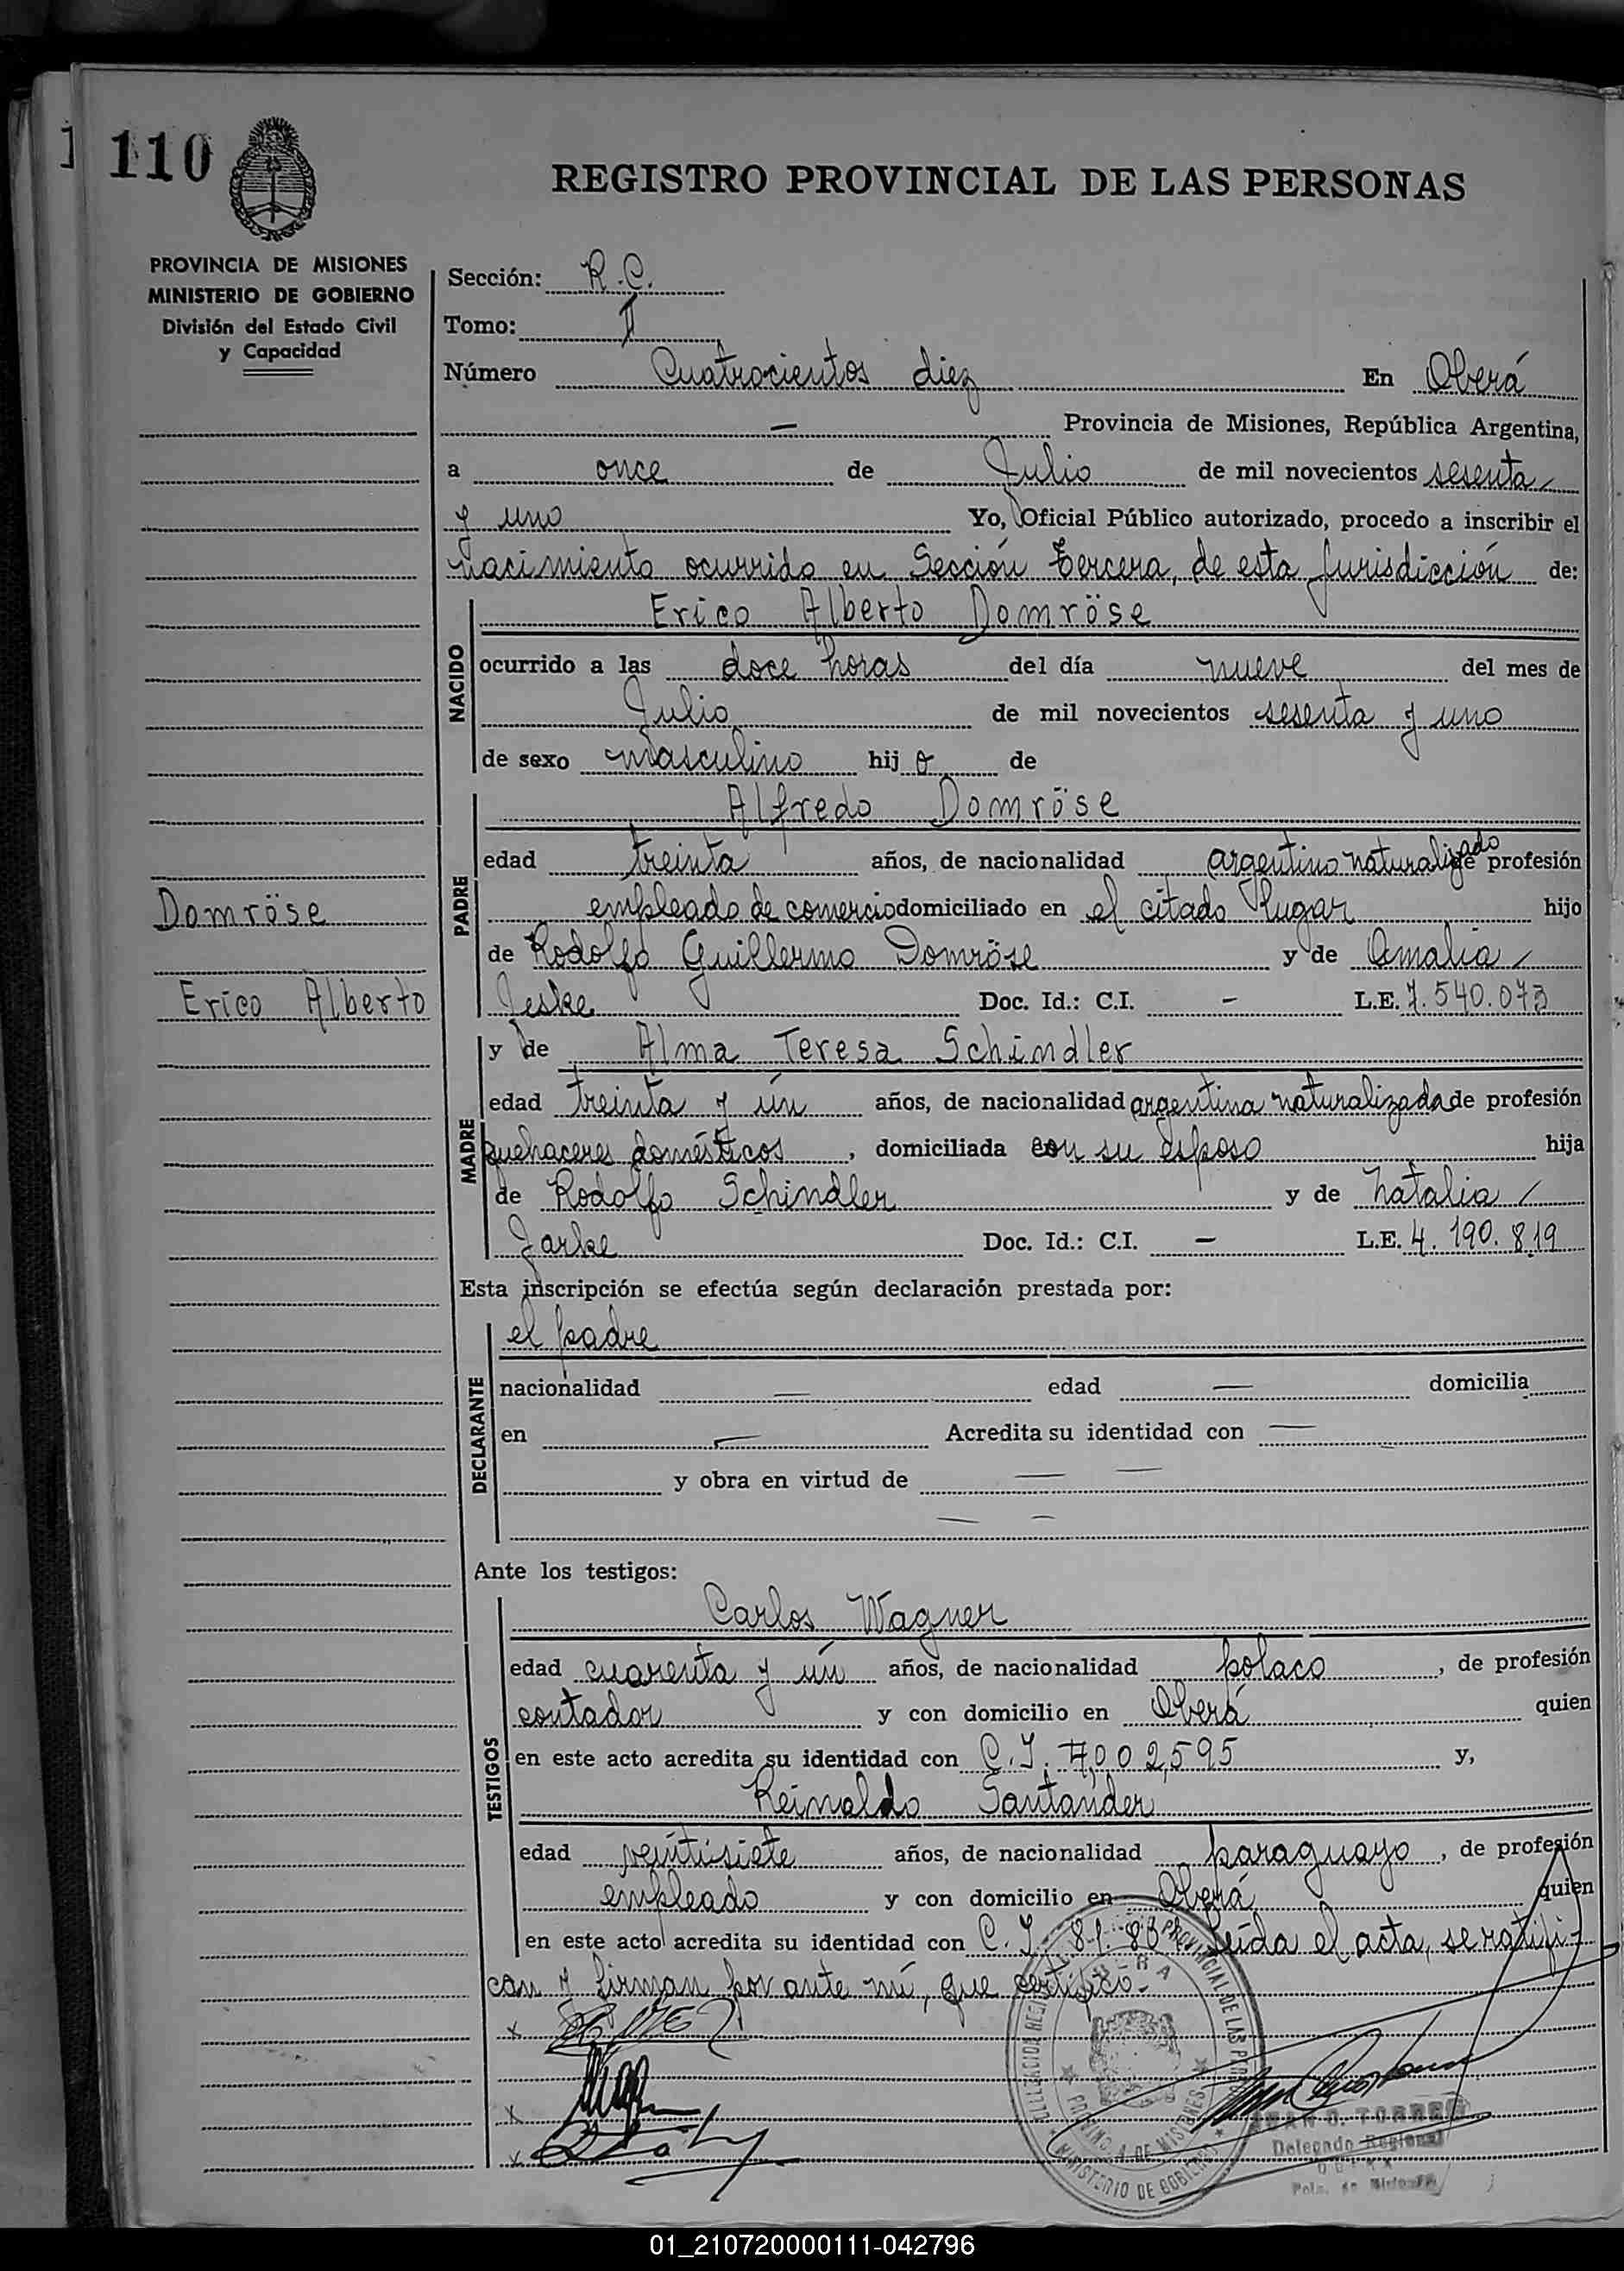 110
REGISTRO PROVINCIAL DE LAS PERSONAS
PROVINCIA DE MISIONES
MINISTERIO DE GOBIERNO
División del Estado Civil
y Capacidad
Sección: R.C.
Tomo: II
Número Cuatrocientos diez En Oberá
— Provincia de Misiones, República Argentina,
a once de Julio de mil novecientos sesenta
y uno Yo, Oficial Público autorizado, procedo a inscribir el
nacimiento ocurrido en Sección tercera, de esta Jurisdicción de:
NACIDO
Erico Alberto Domröse
ocurrido a las doce horas del día nueve del mes de
Julio de mil novecientos sesenta y uno
de sexo masculino hijo de
PADRE
Alfredo Domröse
edad treinta años, de nacionalidad argentino naturalizado de profesión
empleado de comercio domiciliado en el citado lugar hijo
Domröse
de Rodolfo Guillermo Domröse y de Amalia
Erico Alberto
Jeske Doc. Id.: C.I. — L.E. 7.540.073
MADRE
y de Alma Teresa Schindler
edad treinta y ún años, de nacionalidad argentina naturalizada de profesión
quehaceres domésticos, domiciliada con su esposo hija
de Rodolfo Schindler y de Natalia
Jarke Doc. Id.: C.I. — L.E. 4.190.819
Esta inscripción se efectúa según declaración prestada por:
DECLARANTE
el padre
nacionalidad — edad — domicilia
en — Acredita su identidad con —
y obra en virtud de — —
— —
Ante los testigos:
TESTIGOS
Carlos Wagner
edad cuarenta y ún años, de nacionalidad polaco, de profesión
contador y con domicilio en Oberá quien
en este acto acredita su identidad con C.I. 7.002,595 y,
Reinaldo Santander
edad veintisiete años, de nacionalidad paraguayo, de profesión
empleado y con domicilio en Oberá quien
en este acto acredita su identidad con C.I. Leida el acta, se ratifi-
can y firman por ante mí, que certifico.-
PROVINCIAL DE LAS
PROVINCIA DE MISIONES
MINISTERIO DE GOBIERNO
JUAN O. TORRES
Delegado Regional
01_210720000111-042796